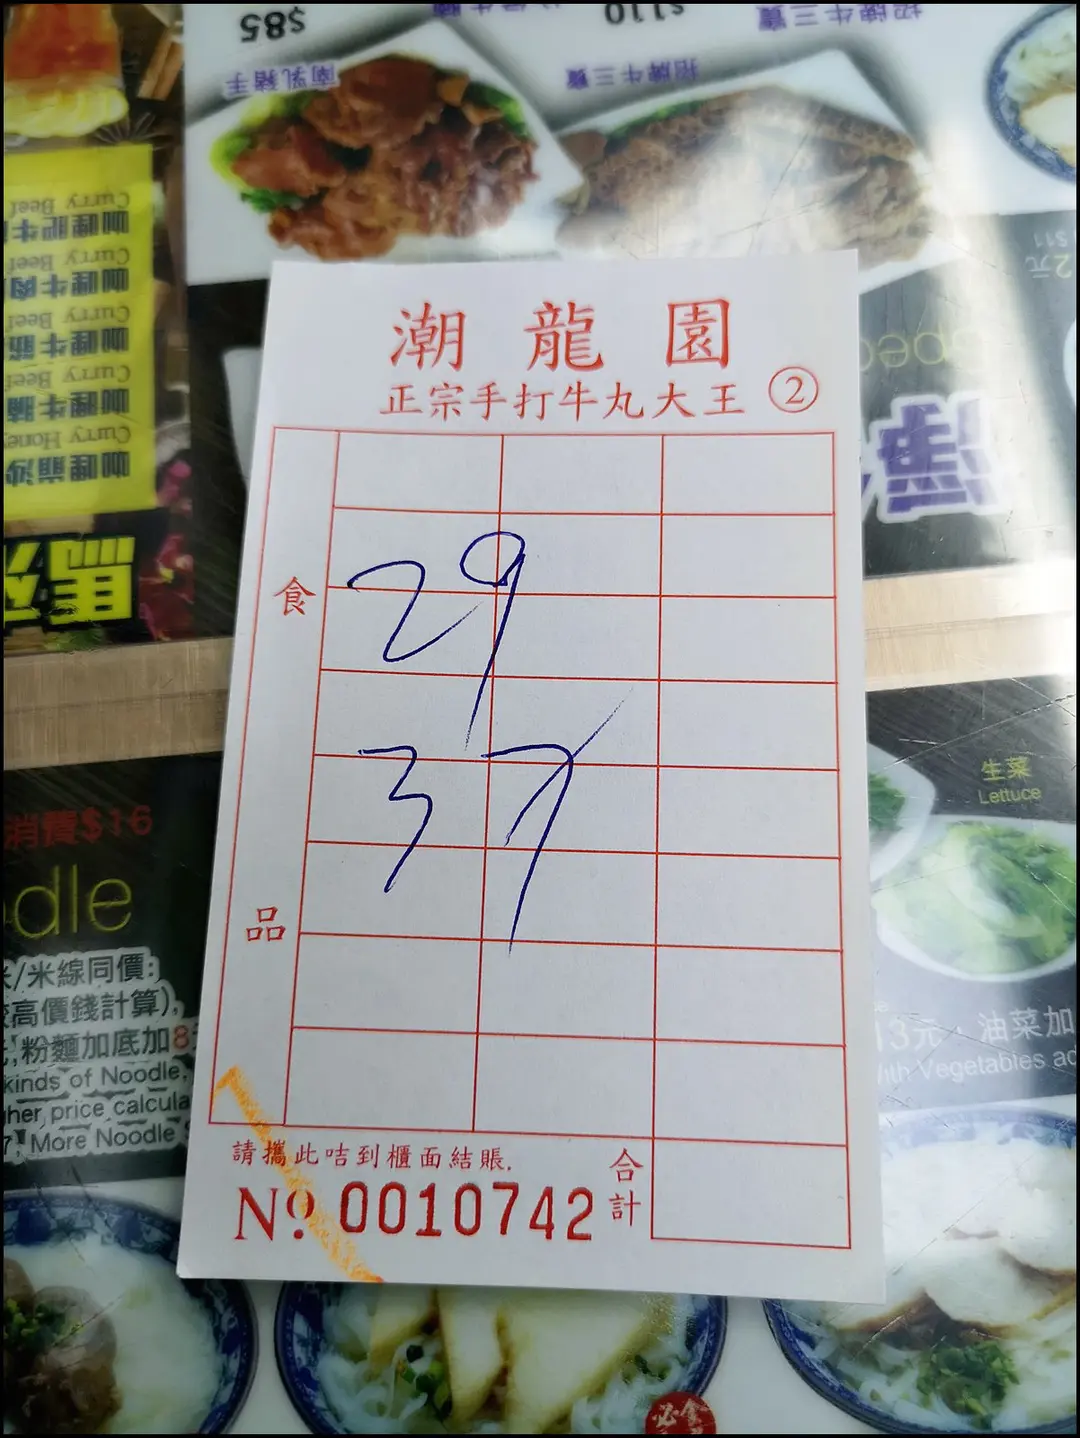 $85
$110
招牌牛三寶
南乳豬手
招牌牛三寶
Curry Beef
咖喱肥牛
Curry Beef
咖喱牛肉
Curry Beef
咖喱牛筋
Curry Beef
咖喱牛腩
Curry Honey
咖喱
潮龍園
正宗手打牛丸大王 ②
食
品
29
37
請攜此咭到櫃面結賬.
合計
No. 0010742
生菜
Lettuce
消費$16
odle
米/米線同價:
高價錢計算),
粉麵加底加8
kinds of Noodle,
her price calcula
7, More Noodle
13元，油菜加
With Vegetables ad